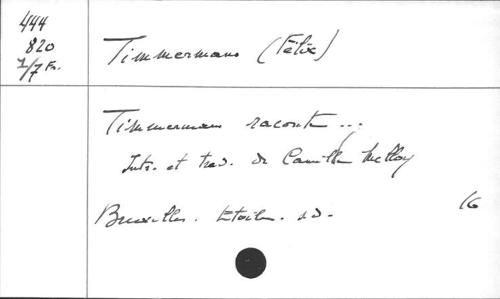 444
820
1/7 Fr.
Timmermans (Félix)
Timmermans raconte ...
Intr. et trad. de Camille Melloy
Bruxelles. Etoile. s.d.
16